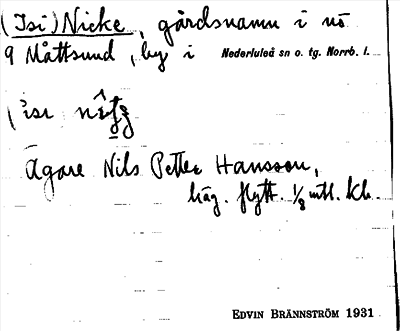 (Isi) Nicke, gårdsnamn i nö
9 Måttsund, by i Nederluleå sn o. tg. Norrb. l.
Ägare Nils Petter Hansson,
häg. flytt. 1/8 mtl. kh.
EDVIN BRÄNNSTRÖM 1931